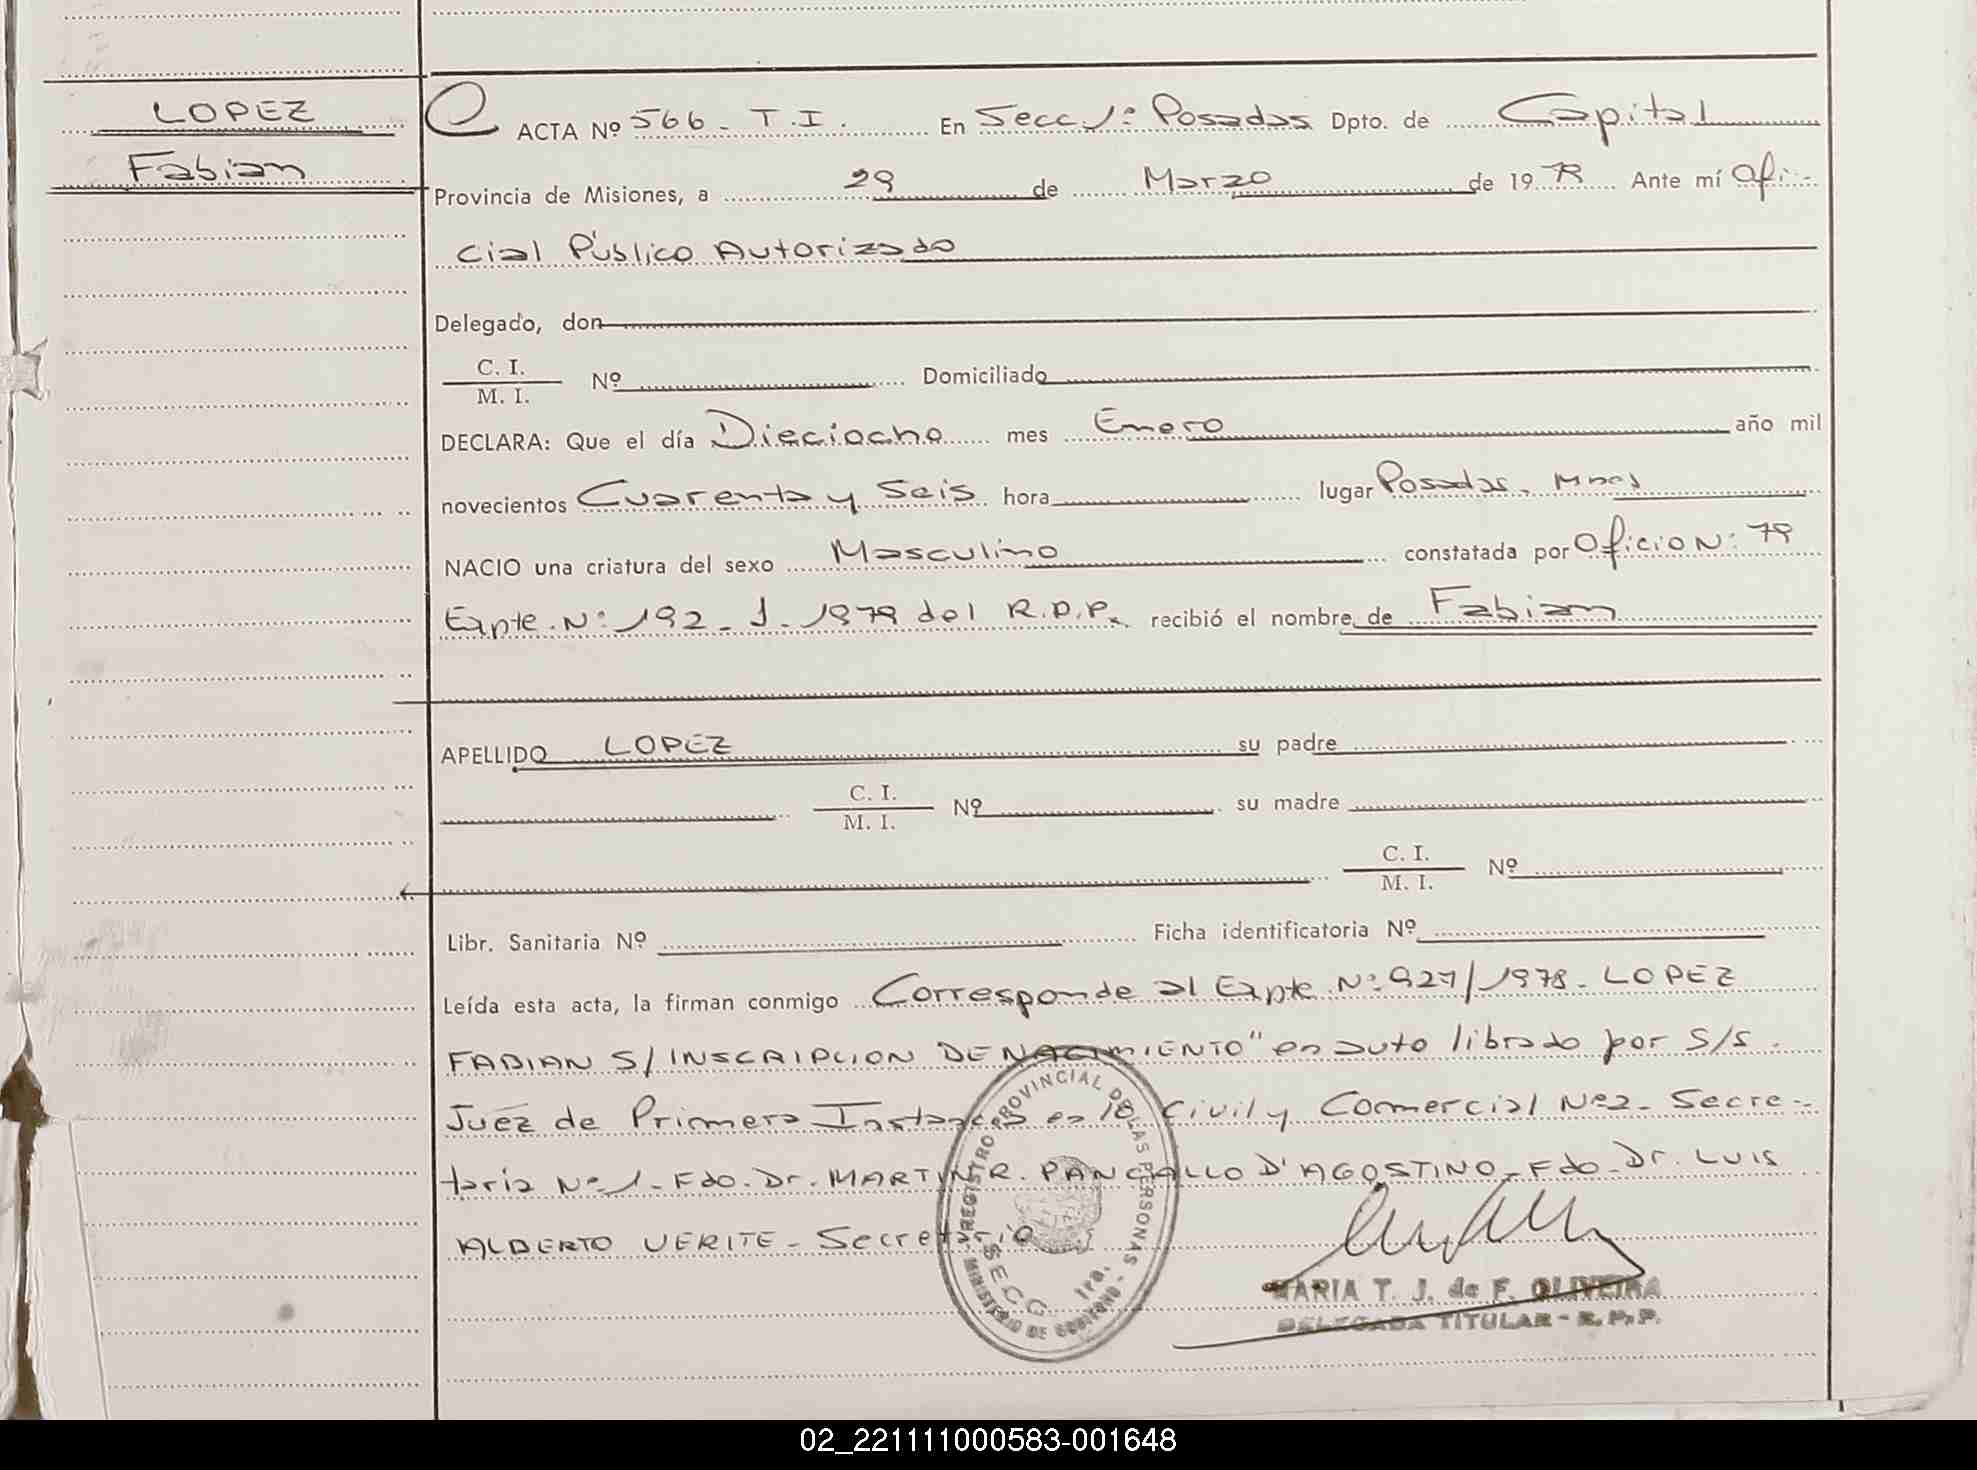 LOPEZ
Fabian
ACTA Nº 566 - T.I. En Secc 1º Posadas Dpto. de Capital
Provincia de Misiones, a 29 de Marzo de 1979 Ante mí Ofi-
cial Público Autorizado
Delegado, don
C. I.
M. I. Nº Domiciliado
DECLARA: Que el día Dieciocho mes Enero año mil
novecientos Cuarenta y Seis hora lugar Posadas, Mnes
NACIO una criatura del sexo Masculino constatada por Oficio Nº 79
Expte. Nº 192 - J - 1979 del R.P.P. recibió el nombre de Fabian
APELLIDO LOPEZ su padre
C. I.
M. I. Nº su madre
C. I.
M. I. Nº
Libr. Sanitaria Nº Ficha identificatoria Nº
Leída esta acta, la firman conmigo Corresponde al Expte Nº 927/1978 - LOPEZ
FABIAN S/ INSCRIPCION DE NACIMIENTO" en auto librado por S/S.
Juez de Primera Instancia en lo Civil y Comercial Nº 2 - Secre-
taria Nº 1 - Fdo. Dr. MARTIN R. PANCALLO D'AGOSTINO - Fdo - Dr. LUIS
ALBERTO VERITE - Secretario
REGISTRO PROVINCIAL DE LAS PERSONAS
SECC. 1ra.
MINISTERIO DE GOBIERNO
MARIA T. J. de F. OLIVEIRA
DELEGADA TITULAR - R. P. P.
02_221111000583-001648